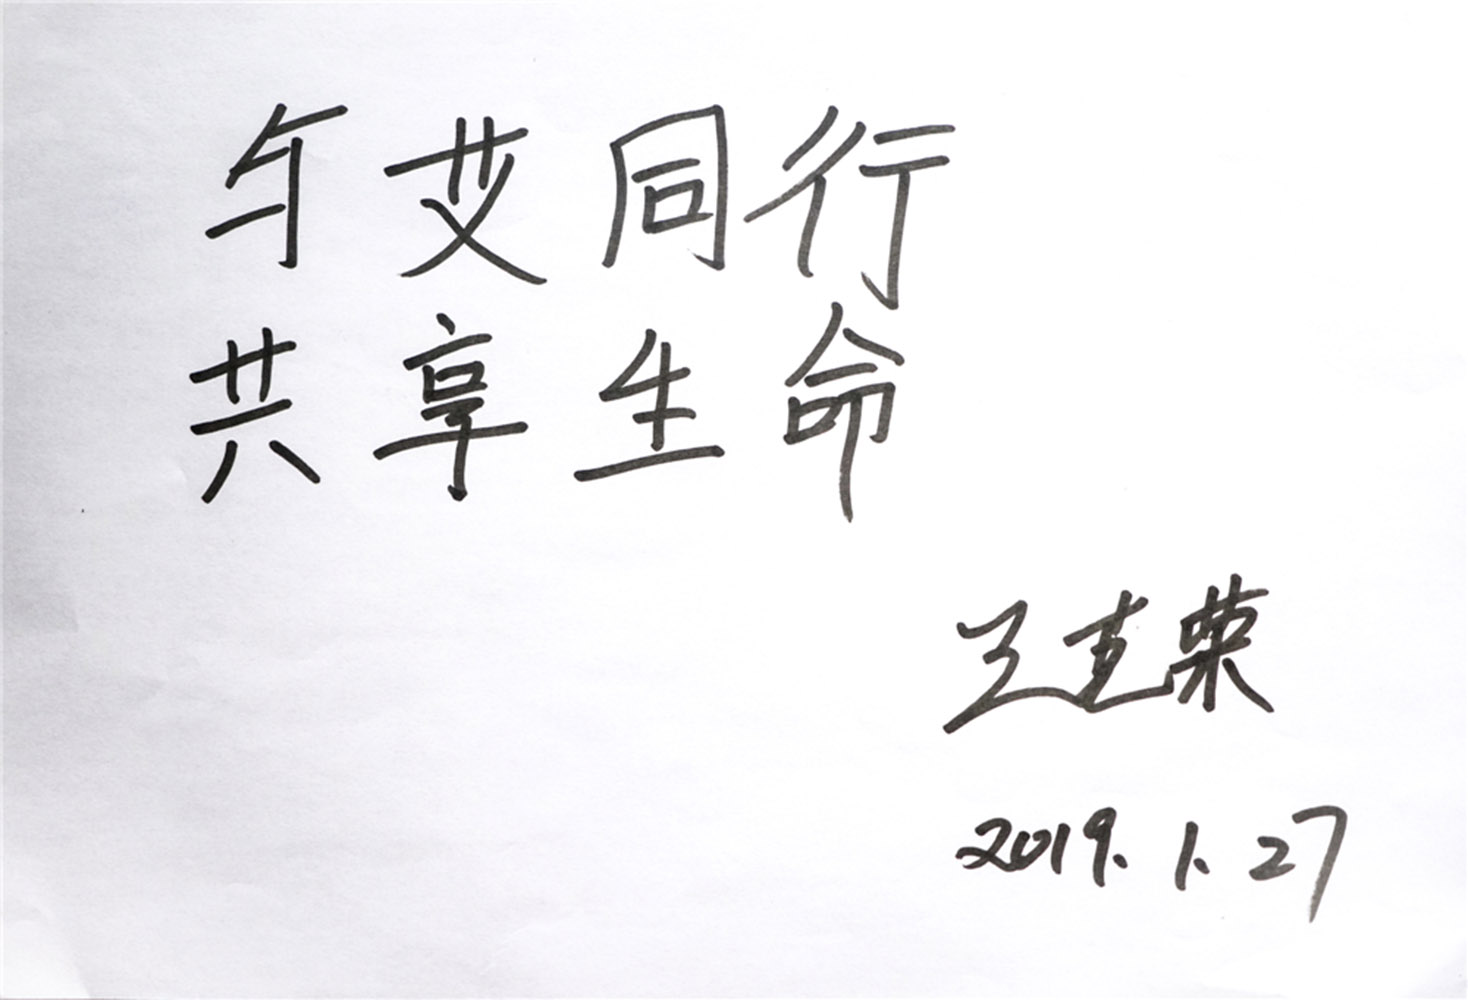 与艾同行
共享生命
王克荣
2019.1.27